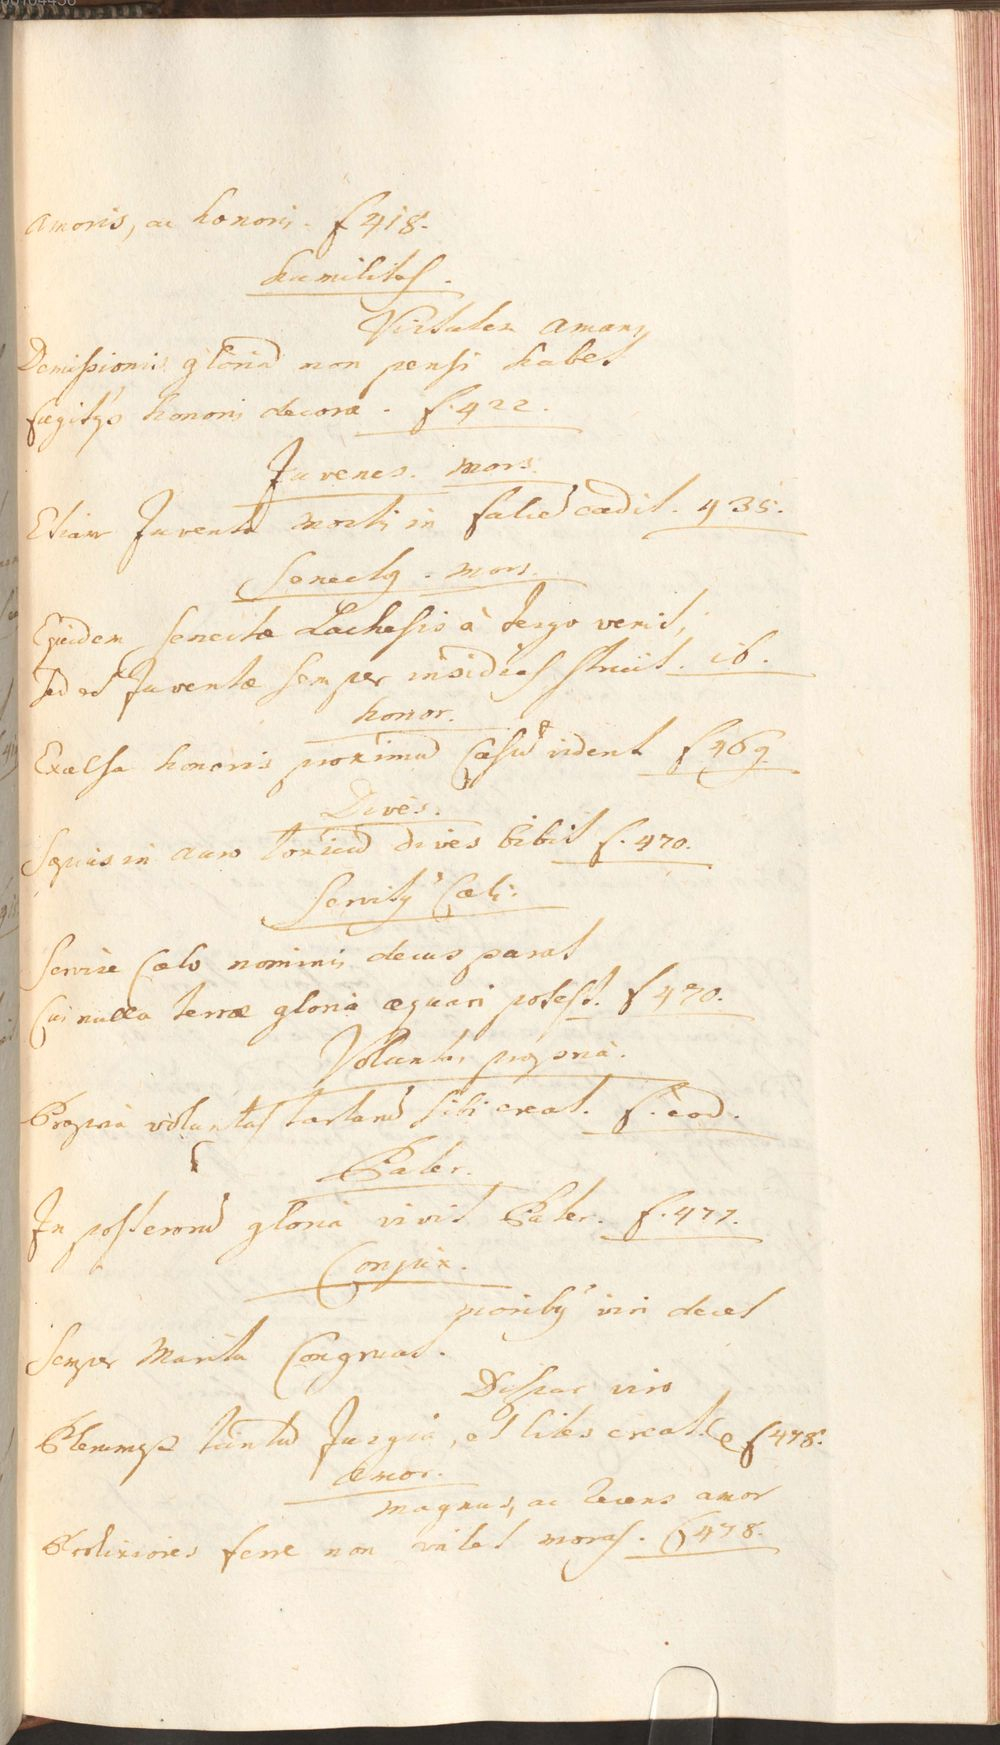 amoris, ac honoris. f 418.
Humilitas.
Virtutem amans
Demissionis gloriã non pensi habet
honoris decora. f. 422.
Juvenes. mors.
Etiam Juventa morti in falcẽ cadit. 435.
Senectq. mors.
Equidem senectæ Lachesis à tergo venit,
sed et Juventæ semper insidias struit. ib.
honor.
Excelsa honoris proximũ Casũ vident f 469.
Dives.
Sæpius in auro toxicũ dives bibit f. 470.
Servitq Cæli.
Servire Cælo nominis decus parat
Cui nulla terræ gloria æquari potest. f 470.
Voluntas propria.
Propria voluntas tartarũ sibi creat. f. eod.
Pater.
In posterorũ gloria vivit Pater. f. 477.
Conjux.
moribq viri decet
Semper Marita Congruat.
Dispar viro
Plerumq tantũ Jurgia, et lites creat. f 478.
Amor.
magnus, ac recens amor
Prolixiores ferre non valet moras. f 478.